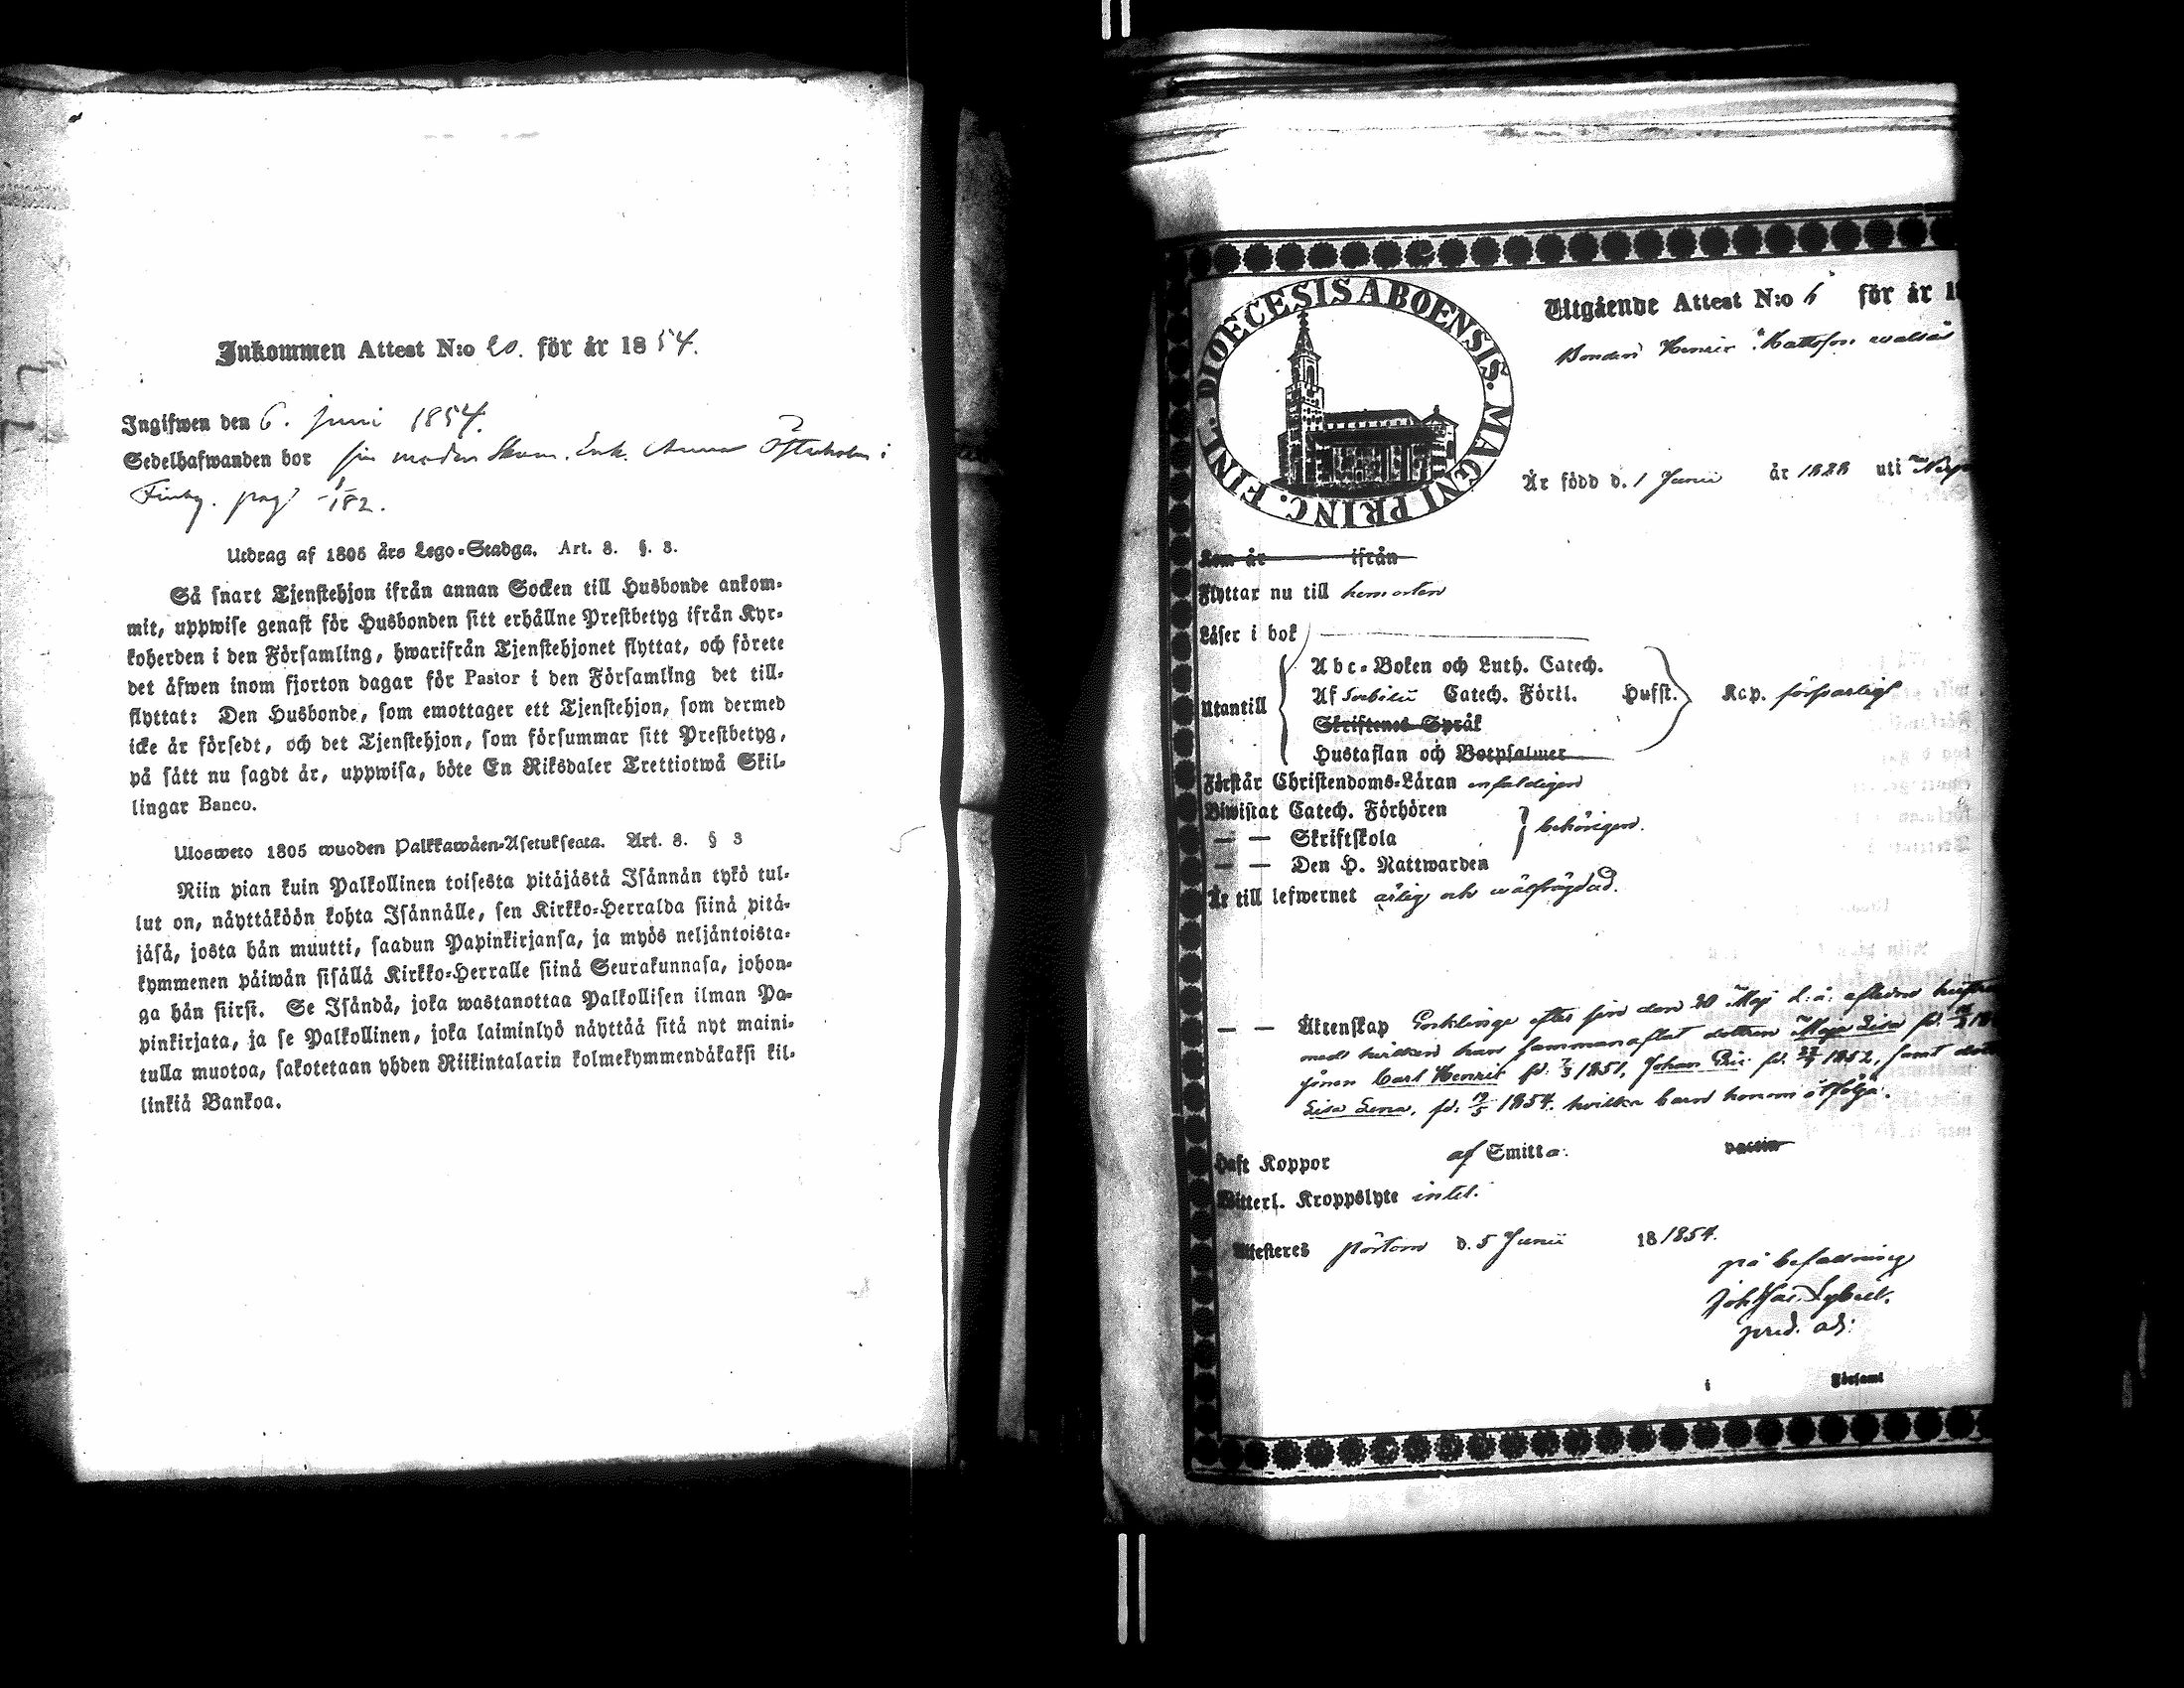 Inkommen Attest N:o 20. för år 1854.
Ingifwen den 6. juni 1854.
Sedelhafwanden bor
Finby. pag. 182.
Utdrag af 1805 års Lego-Stadga. Art. 8. §. 3.
Så snart Tjenstehjon ifrån annan Socken till Husbonde ankom-
mit, uppwise genast för Husbonden sitt erhållne Prestbetyg ifrån Kyr-
koherden i den Församling, hwarifrån Tjenstehjonet flyttat, och förete
det äfwen inom fjorton dagar för Pastor i den Församling det till-
flyttat: Den Husbonde, som emottager ett Tjenstehjon, som dermed
icke är försedt, och det Tjenstehjon, som försummar sitt Prestbetyg,
på sätt nu sagdt är, uppwisa, böte En Riksdaler Trettiotwå Skil-
lingar Banco.
Ulosweto 1805 wuoden Palkkawäen-Asetuksesta. Art. 8. § 3
Niin pian kuin Palkollinen toisesta pitäjästä Isännän tykö tul-
lut on, näyttäköön kohta Isännälle, sen Kirkko-Herralda siinä pitä-
jäsä, josta hän muutti, saadun Papinkirjansa, ja myös neljäntoista-
kymmenen päiwän sisällä Kirkko-Herralle siinä Seurakunnasa, johon-
ga hän siirsi. Se Isändä, joka wastanottaa Palkollisen ilman Pa-
pinkirjata, ja se Palkollinen, joka laiminlyö näyttää sitä nyt maini-
tulla muotoa, sakotetaan yhden Riikintalarin kolmekymmendäkaksi kil-
linkiä Bankoa.
DIOECESIS ABOENSIS. MAGNI PRINC. FINL.
Utgående Attest N:o 6 för år 1
Bonden Henric Mattsson
Är född d. 1 Junii år 1828 uti
Kom år ifrån
Flyttar nu till hemorten
Läser i bok
Utantill
Abc-Boken och Luth. Catech.
Af Svebilii Catech. Förkl. Husst. Kap. försvarligt
Skriftenes Språk
Hustaflan och Botpsalmer
Förstår Christendoms-Läran enfaldigen
Biwistat Catech. Förhören
— — Skriftskola behörigen.
— — Den H. Nattwarden
Är till lefwernet ärlig och wälfrägdad.
— — Äktenskap Enklinge efter sin den 20 Maj d: å: aflidna hustru
med hvilken han sammanaflat dottren Maja Lisa fd:
sönen Carl Henrik fd: 7/3 1851, Johan Eric fd: 1852, samt
Lisa Lena, fd: 19/5 1854. hvilka barn honom åtfölja.
Haft Koppor af Smitta. vaccin
Witterl. Kroppslyte intet.
Attesteres Pörtom d. 5 Junii 18 1854.
på befallning
pred. adj:
i Församl